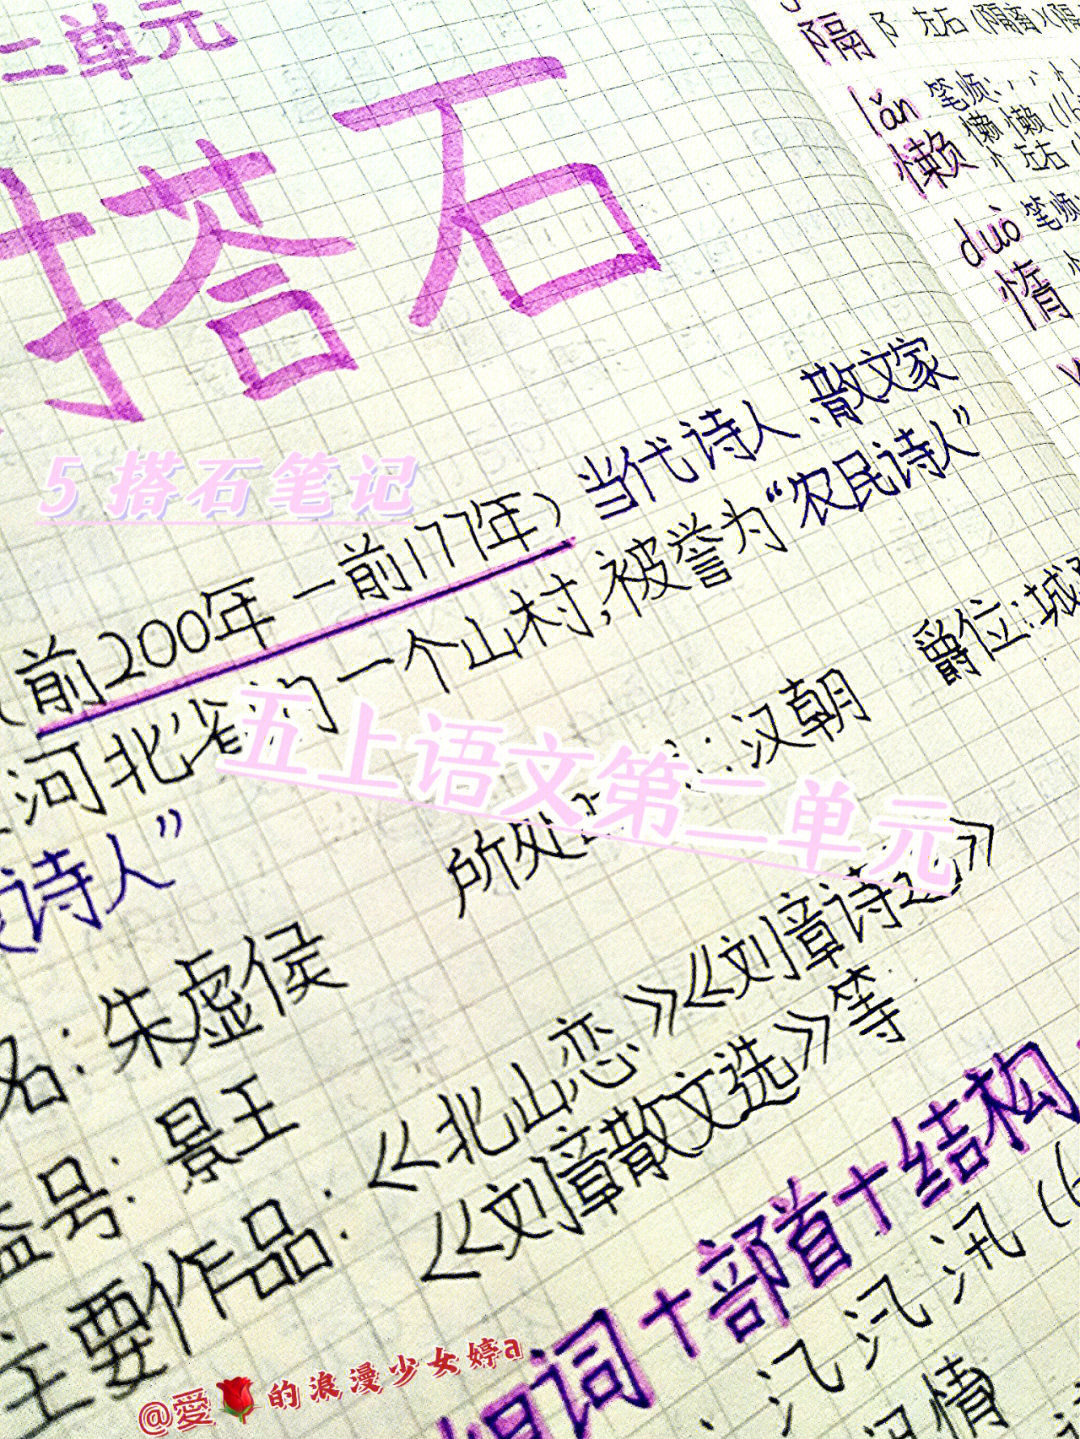 二单元
搭石
5 搭石笔记
(前200年—前177年)当代诗人、散文家
河北省的一个山村,被誉为“农民诗人”
五上语文第二单元
诗人” 所处 :汉朝 爵位:城
名:朱虚侯
谥号:景王
主要作品:《北山恋》《刘章诗选》
《刘章散文选》等
组词+部首+结构
汛
情
隔 阝 左右(隔离)(隔
lǎn 笔顺:
懒 懒懒
忄左右(
duò 笔顺
惰
@爱的浪漫少女婷a